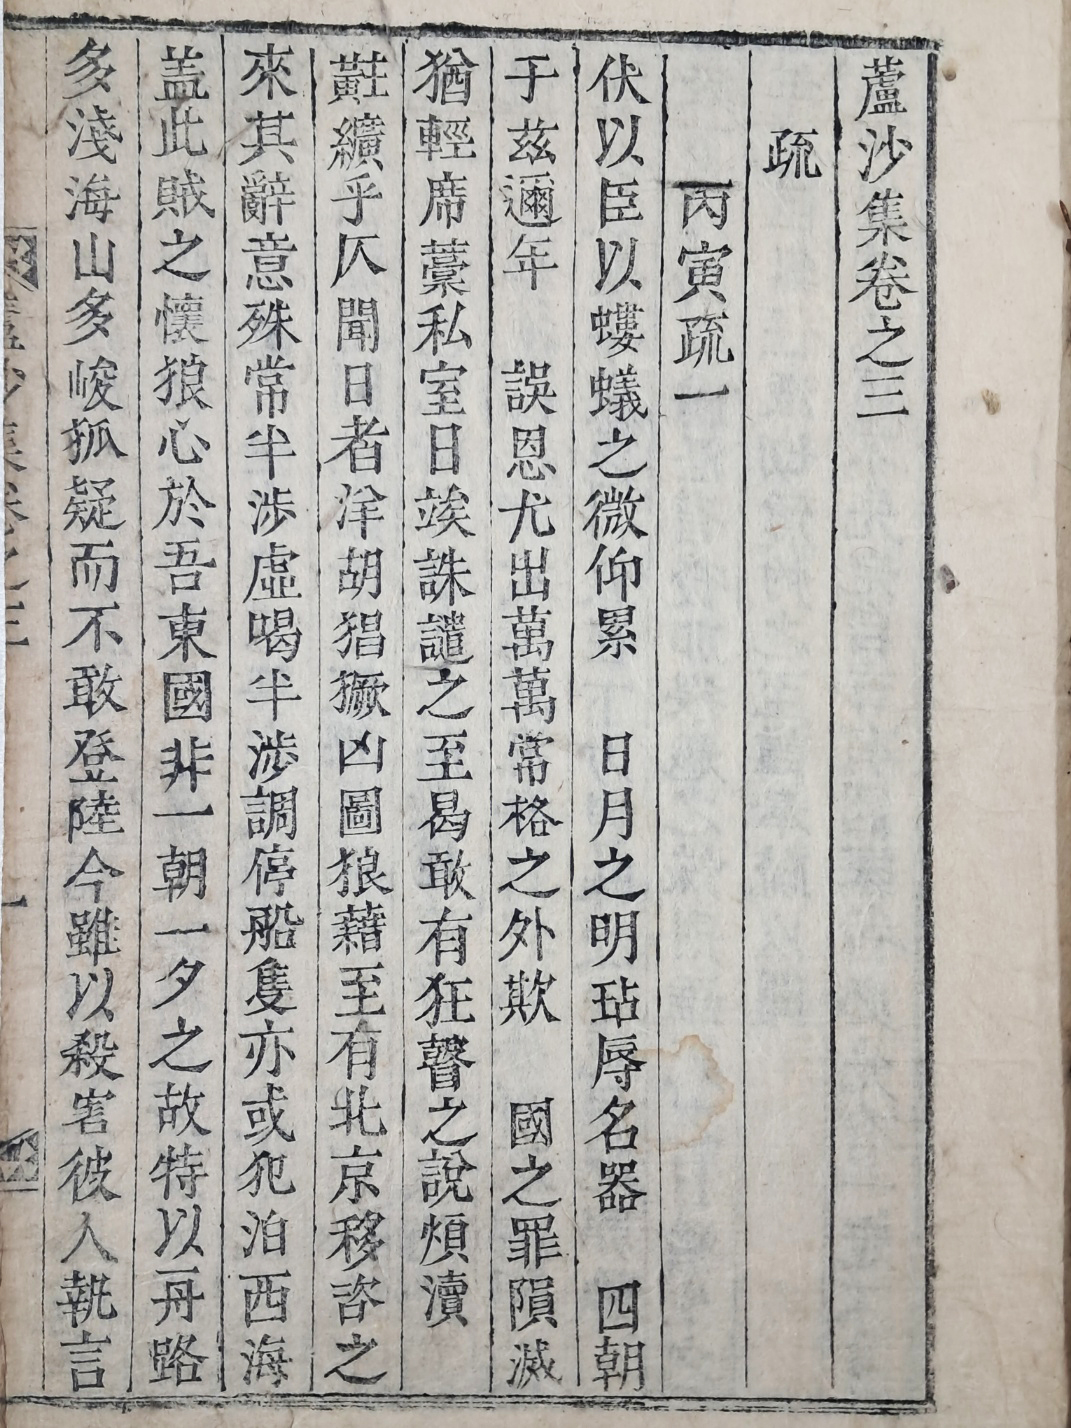 蘆沙集卷之三
疏
丙寅疏一
伏以臣以螻蟻之微仰累　日月之明玷辱名器　四朝
于茲邇年　誤恩尤出萬萬常格之外欺　國之罪隕滅
猶輕席藁私室日竢誅譴之至曷敢有狂瞽之說煩瀆
黈纊乎仄聞日者洋胡猖獗凶圖狼藉至有北京移咨之
來其辭意殊常半涉虛喝半涉調停船隻亦或犯泊西海
盖此賊之懷狼心於吾東國非一朝一夕之故特以舟路
多淺海山多峻狐疑而不敢登陸今雖以殺害彼人執言
蘆沙集卷之三
一